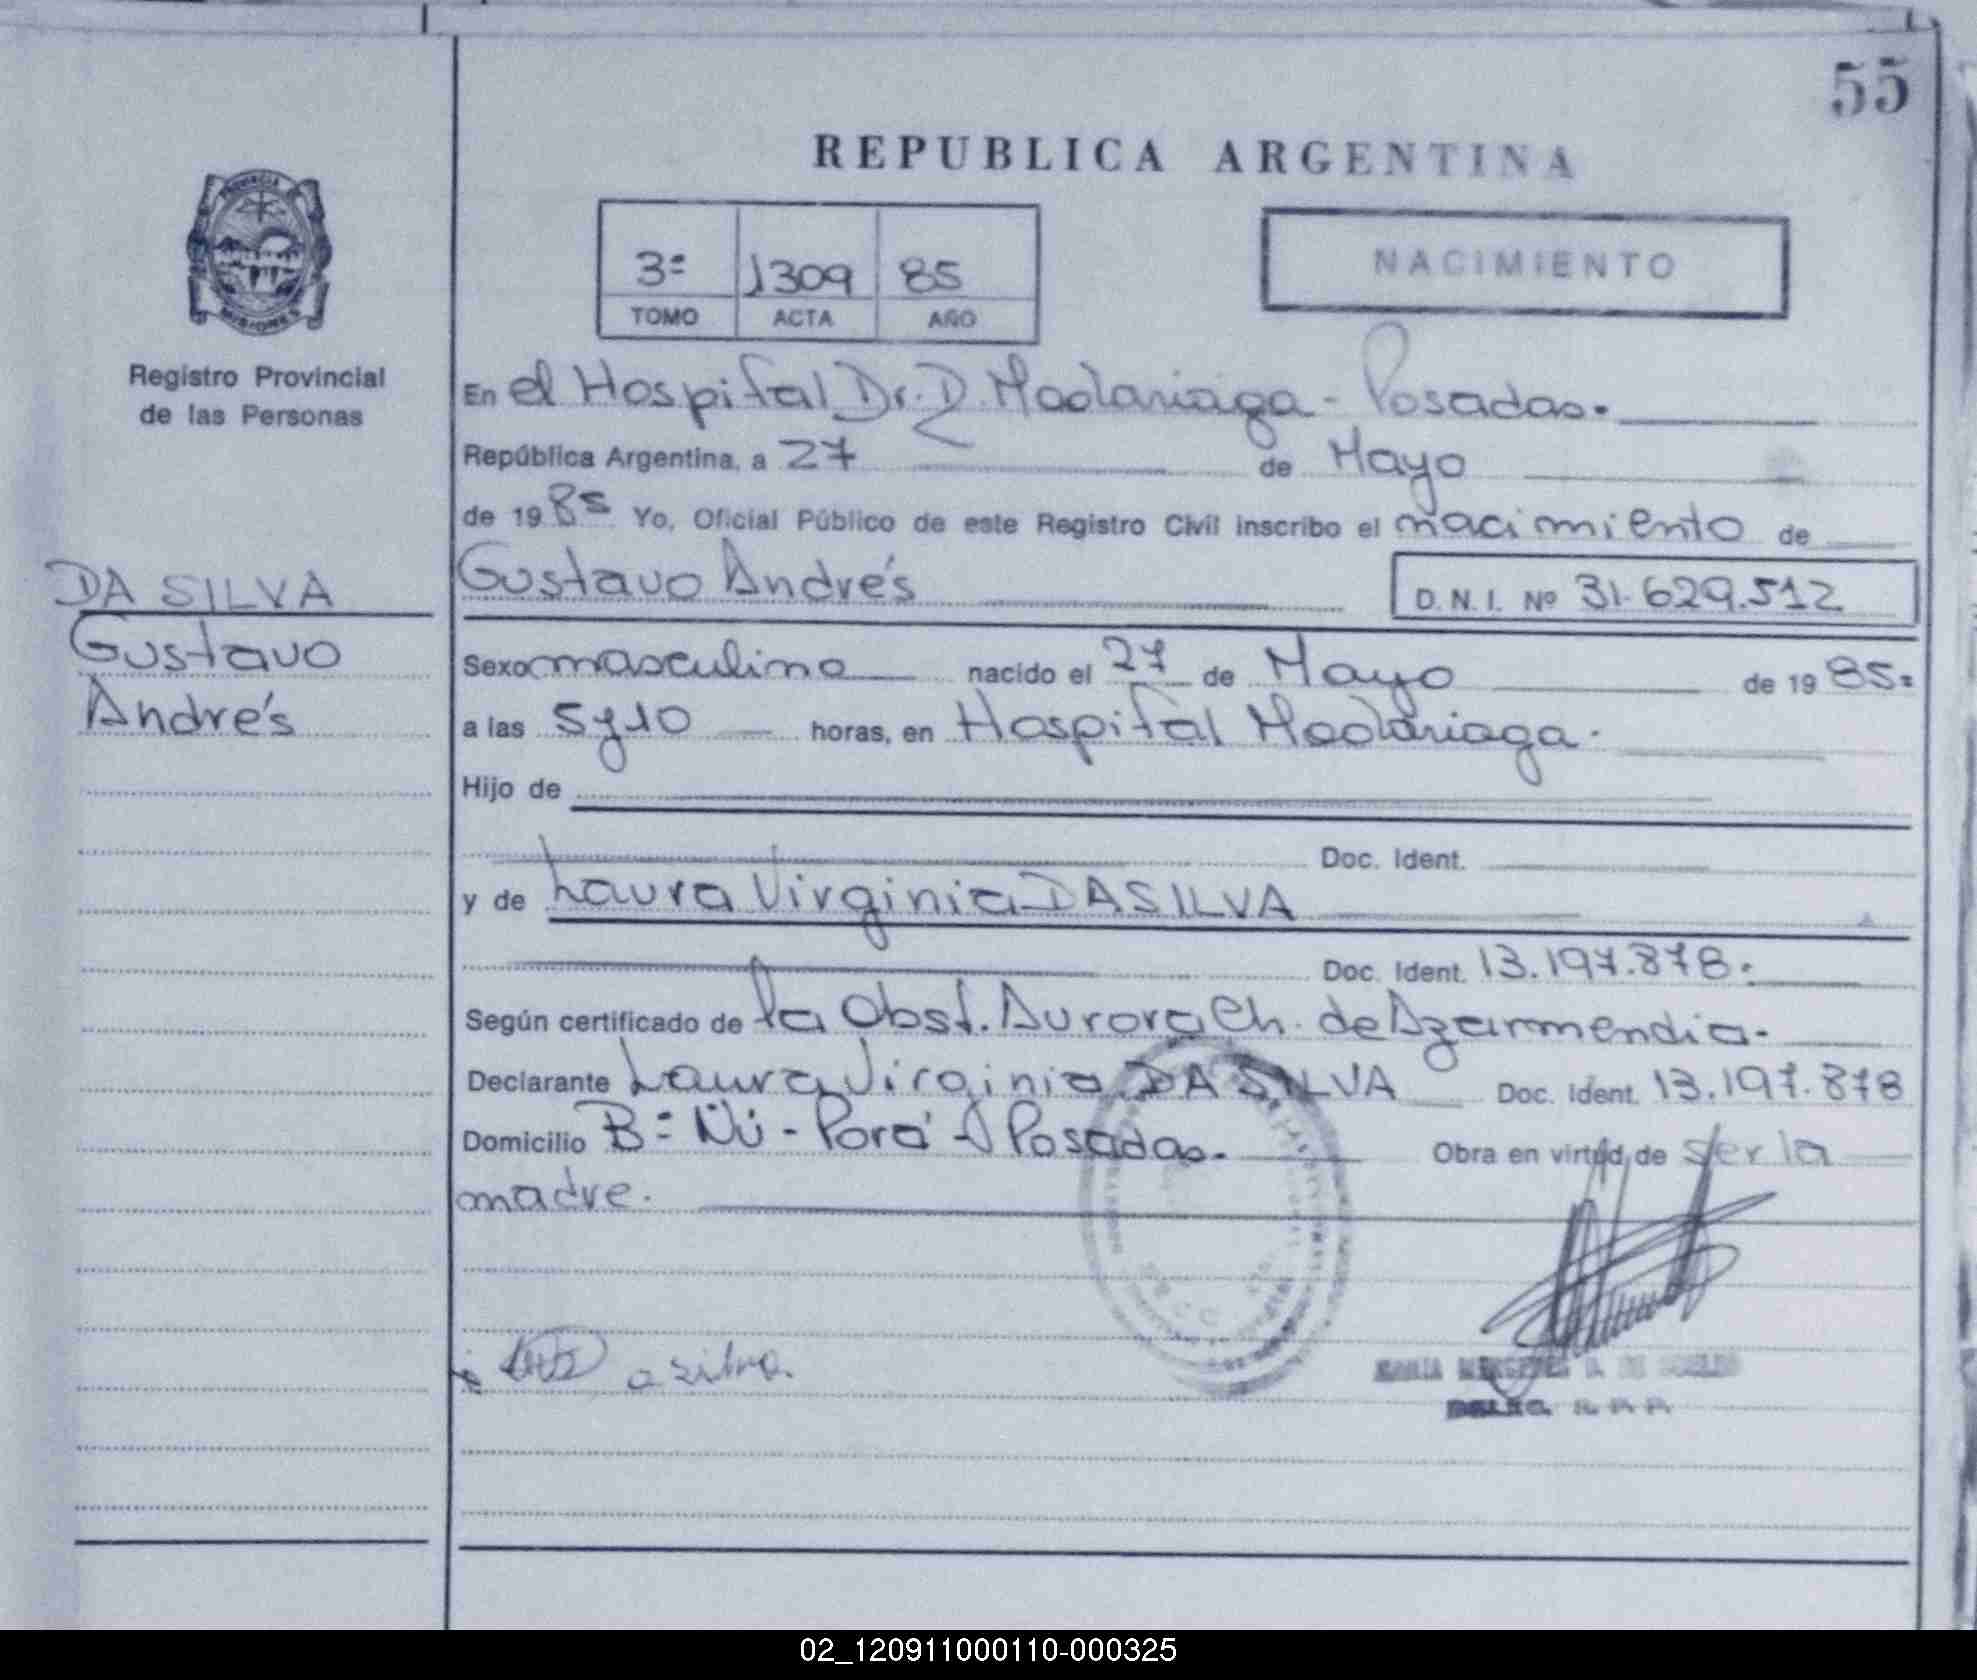 55
REPUBLICA ARGENTINA
PROVINCIA DE
MISIONES
Registro Provincial
de las Personas
3º 1309 85
TOMO ACTA AÑO
NACIMIENTO
En el Hospital Dr. D. Madariaga - Posadas.
República Argentina, a 27 de Mayo
de 1985 Yo, Oficial Público de este Registro Civil inscribo el nacimiento de
Gustavo Andrés D.N.I. Nº 31.629.512
DA SILVA
Gustavo
Andrés
Sexo masculino nacido el 27 de Mayo de 1985=
a las 5 y 10 horas, en Hospital Madariaga.
Hijo de
Doc. Ident.
y de Laura Virginia DA SILVA
Doc. Ident. 13.197.878.
Según certificado de la Obst. Aurora Ch. de Azarmendia.
Declarante Laura Virginia DA SILVA Doc. Ident. 13.197.878
Domicilio Bº Ñú - Porá - Posadas. Obra en virtud de ser la
madre.
a silva.
MARIA MERCEDES
DELEG. R. P. P.
02_120911000110-000325